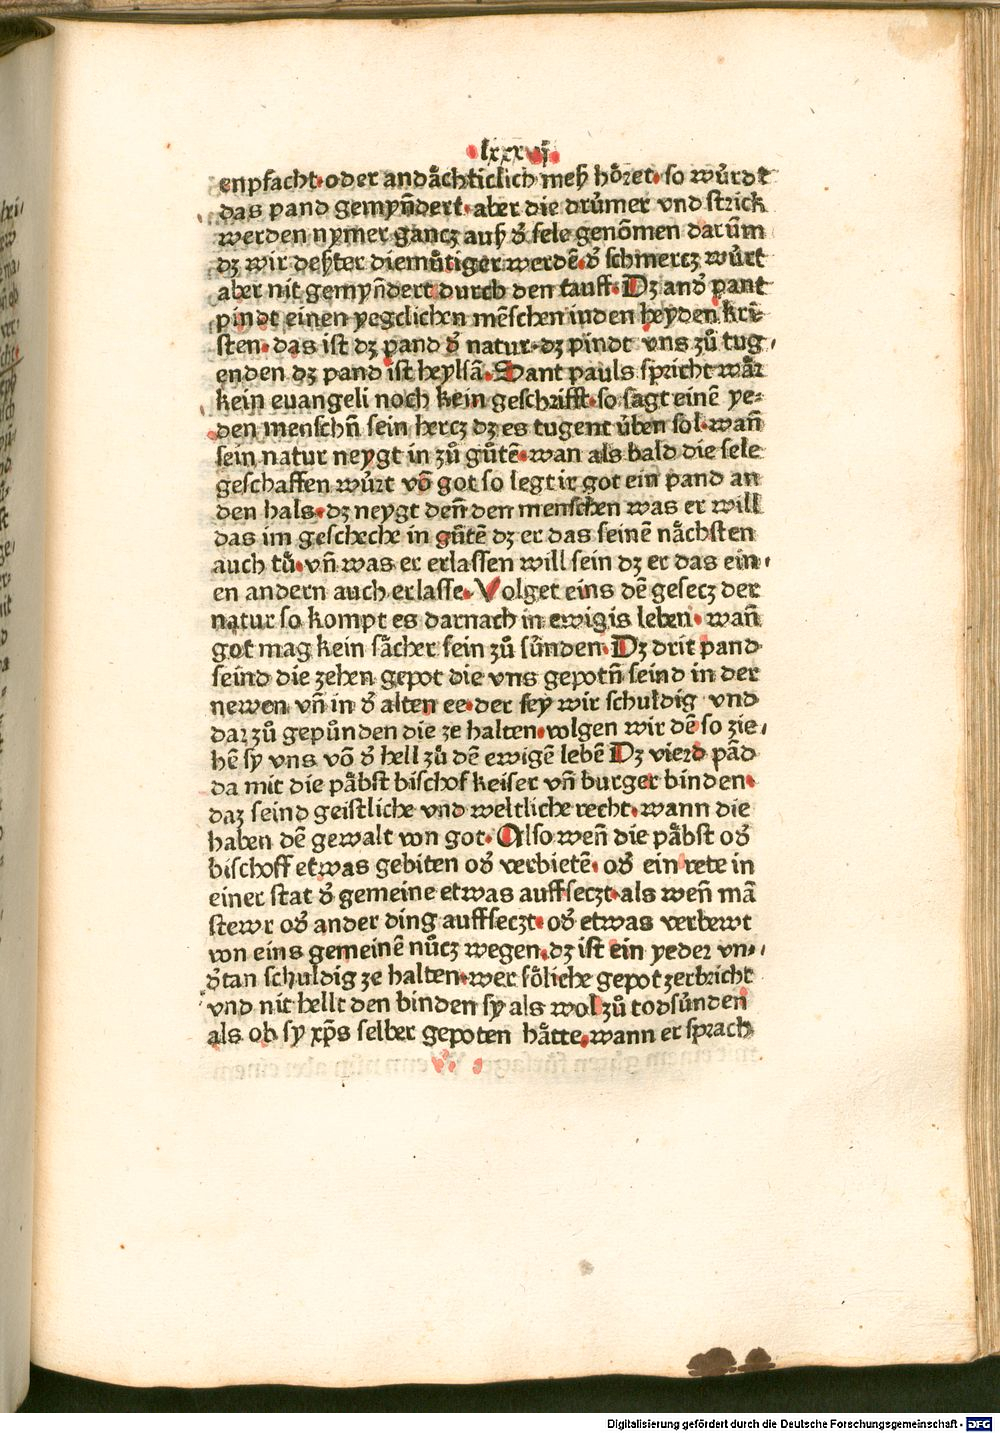 lxxxvij
enpfacht·oder andåchticlich meß hȯret·so wu̇rdt
das pand gemyn̄dert·aber die dru̇mer vnd strick
werden nymer gancz auß ð sele genōmen darūm
dz wir deßter diemůtiger werdē·ð schmercz wu̇rt
aber nit gemyn̄dert durch den tauff·Dz and̕ pant
pindt einen yegclichen mēschen in den heyden kri-
sten·das ist dz pand ð natur·dz pindt vns zů tug-
enden dz pand ist heylsā·Sant pauls spricht wår
kein euangeli noch kein geschrifft·so sagt einē ye-
den menschn̄ sein hercz dz es tugent u̇ben sol·wan̄
sein natur neygt in zů gůtē·wan als bald die sele
geschaffen wu̇rt vō got so legt ir got ein pand an
den hals·dz neygt den̄ den menschen was er will
das im gescheche in gůtē dz er das seinē nåchsten
auch tů·vn̄ was er erlassen will sein dz er das ein-
en andern auch erlasse·Volget eins dē gesecz der
natur so kompt es darnach in ewigis leben·wan̄
got mag kein såcher sein zů su̇nden·Dz drit pand
seind die zehen gepot die vns gepotn̄ seind in der
newen vn̄ in ð alten ee·der sey wir schuldig vnd
dar zů gepůnden die ze halten·volgen wir dē so zie-
hē sy vns vō ð hell zů dē ewigē lebē Dz vierd pād
da mit die påbst bischof keiser vn̄ burger binden·
daz seind geistliche vnd weltliche recht·wann die
haben dē gewalt von got·Also wen̄ die påbst od̕
bischoff etwas gebiten od̕ verbietē·od̕ ein rete in
einer stat ð gemeine etwas auffseczt·als wen̄ mā
stewr od̕ ander ding auffseczt·od̕ etwas verbewt
von eins gemeinē nůcz wegen·dz ist ein yeder vn-
ðtan schuldig ze halten·wer sȯliche gepot zerbricht
vnd nit hellt den binden sy als wol zů todsu̇nden
als ob sy xp̄s selber gepoten håtte·wann er sprach
Digitalisierung gefördert durch die Deutsche Forschungsgemeinschaft - DFG